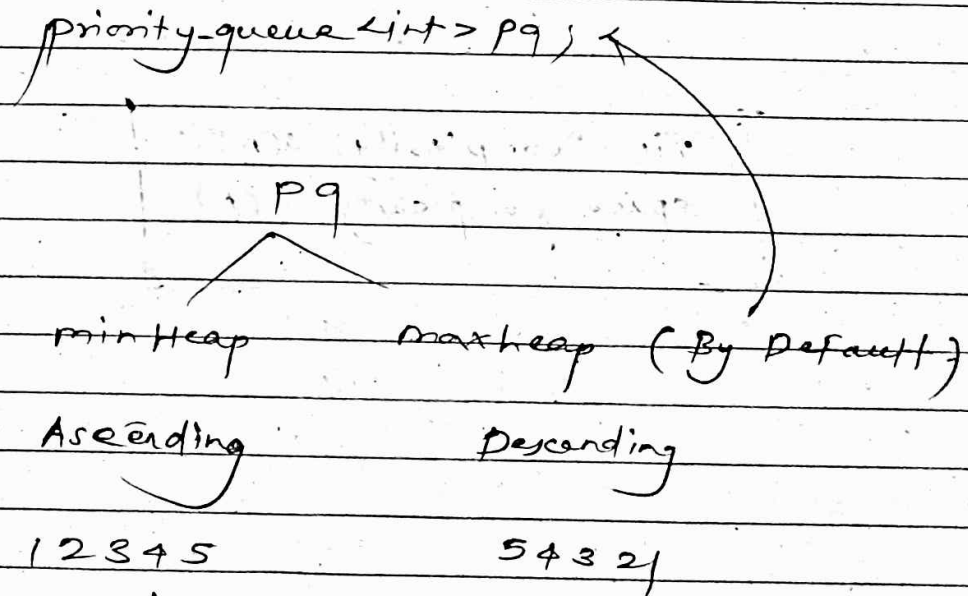 priority_queue <int> pq ;
pq
minHeap maxheap (By Default)
Ascending Descending
1 2 3 4 5 5 4 3 2 1